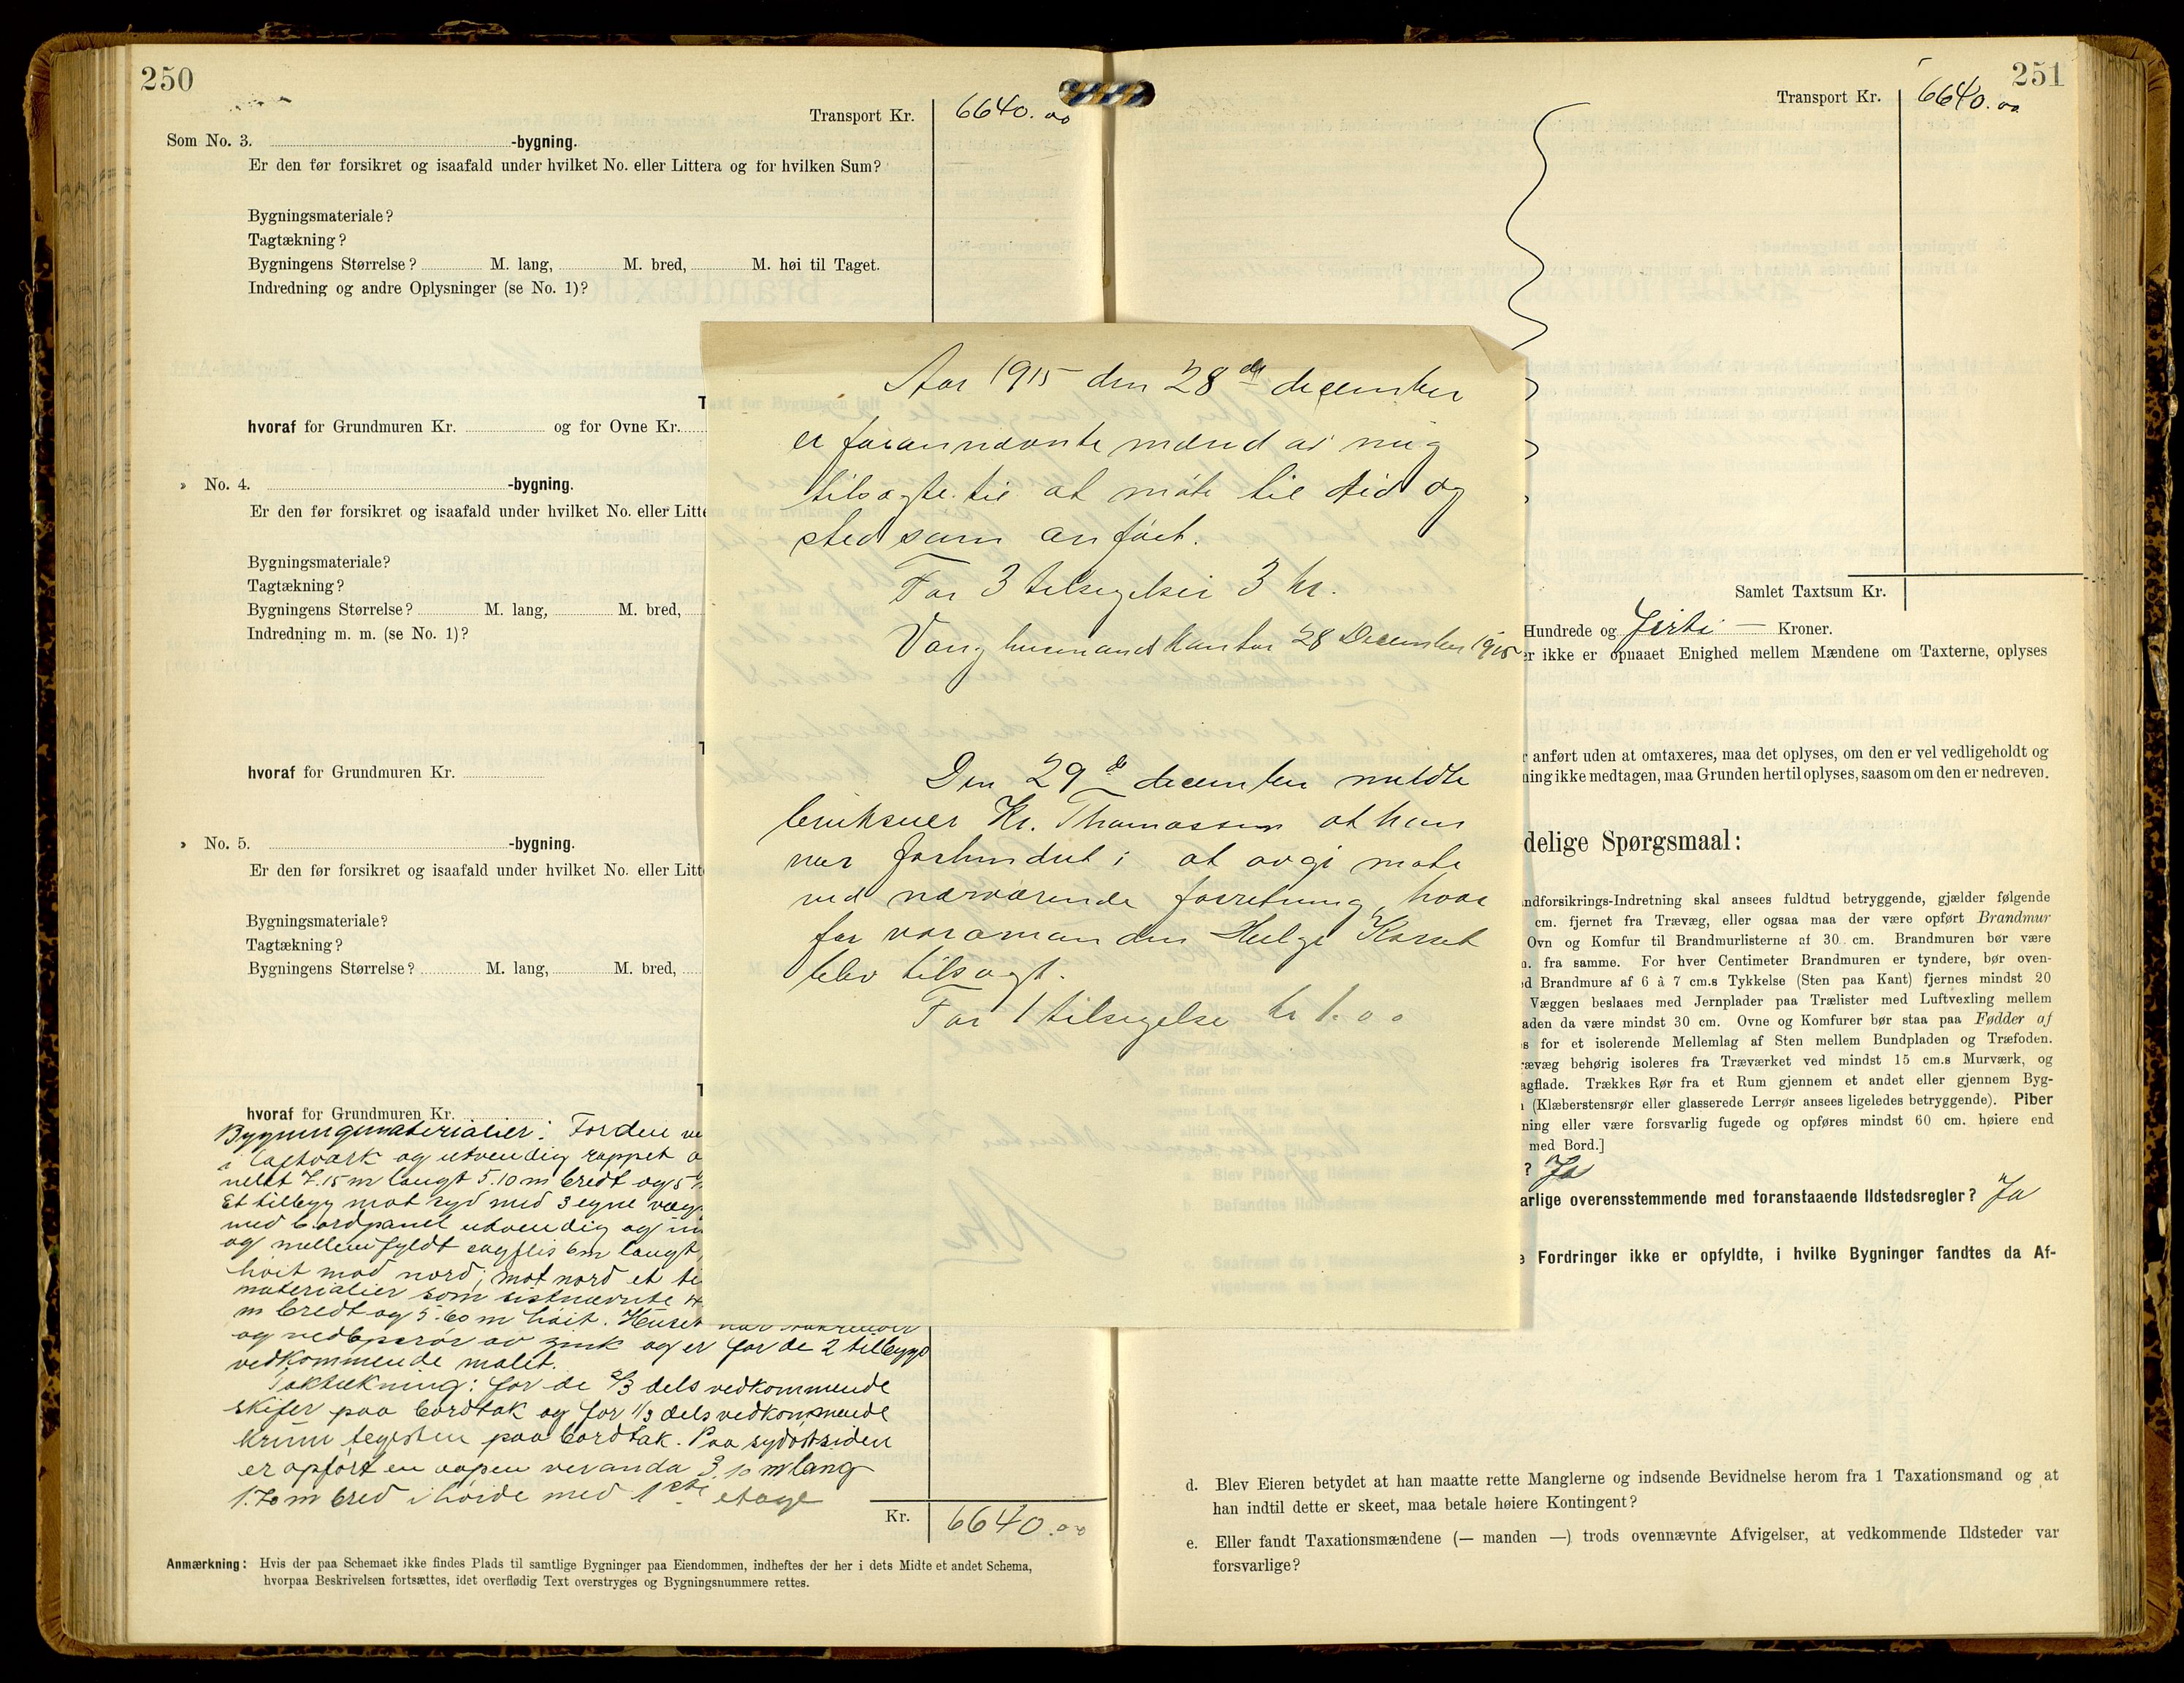 250
Transport Kr. 6640.00
Som No. 3. -bygning.
Er den før forsikret og isaafald under hvilket No. eller Littera og for hvilken Sum?
Bygningsmateriale?
Tagtækning?
Bygningens Størrelse? M. lang, M. bred, M. høi til Taget.
Indredning og andre Oplysninger (se No. 1)?
hvoraf for Grundmuren Kr. og for Ovne Kr.
» No. 4. -bygning.
Er den før forsikret og isaafald under hvilket No. eller Litte
Bygningsmateriale?
Tagtækning?
Bygningens Størrelse? M. lang, M. bred,
Indredning m. m. (se No. 1)?
hvoraf for Grundmuren Kr.
» No. 5. -bygning.
Er den før forsikret og isaafald under hvilket No. eller Litt
Bygningsmateriale?
Tagtækning?
Bygningens Størrelse? M. lang, M. bred,
hvoraf for Grundmuren Kr.
Bygningsmaterialier: Fordeu
i laftværk og utvendig rappet
7.15 m langt 5.10 m bredt og 5
Et tilbyg mot syd med 3 egne væg
med bordpanel utvendig og in
og mellemfyldt sagflis 6m langt
høit mod nord; mot nord et ti
materialier som sistnævnte
m bredt og 5.60 m høit. Huset har takrender
og nedløpsrør av zink og er for de 2 tilbygs
vedkommende malet.
Taktækning: for de 2/3 dels vedkommende
skifer paa bordtak og for 1/3 dels vedkommende
krum teglsten paa bordtak. Paa sydøstsiden
er opført en aapen veranda 3.10 m lang
1.70 m bred i høide med 1ste etage
Kr. 6640.00
Anmærkning: Hvis der paa Schemaet ikke findes Plads til samtlige Bygninger paa Eiendommen, indheftes der her i dets Midte et andet Schema,
hvorpaa Beskrivelsen fortsættes, idet overflødig Text overstryges og Bygningsnummere rettes.
Aar 1915 den 28de december
er forannævnte mænd av mig
tilsagte til at møte til tid og
sted som anført.
For 3 tilsigelser 3 kr.
Vang lensmandskontor 28 December 1915
Den 29de december meldte
brukseier Kr. Thomassen at han
var forhindret i at avgi møte
ved nærværende forretning, hvor
for varamanden Helge
blev tilsagt.
For 1 tilsigelse kr 1.00
251
Transport Kr. 6640.00
Samlet Taxtsum Kr.
Hundrede og firti — Kroner.
er ikke er opnaaet Enighed mellem Mændene om Taxterne, oplyses
r anført uden at omtaxeres, maa det oplyses, om den er vel vedligeholdt og
ning ikke medtagen, maa Grunden hertil oplyses, saasom om den er nedreven.
delige Spørgsmaal:
ndforsikrings-Indretning skal ansees fuldtud betryggende, gjælder følgende
cm. fjernet fra Trævæg, eller ogsaa maa der være opført Brandmur
Ovn og Komfur til Brandmurlisterne af 30 cm. Brandmuren bør være
. fra samme. For hver Centimeter Brandmuren er tyndere, bør oven-
d Brandmure af 6 à 7 cm.s Tykkelse (Sten paa Kant) fjernes mindst 20
Væggen beslaaes med Jernplader paa Trælister med Luftvexling mellem
aden da være mindst 30 cm. Ovne og Komfurer bør staa paa Fødder af
s for et isolerende Mellemlag af Sten mellem Bundpladen og Træfoden.
rævæg behørig isoleres fra Træværket ved mindst 15 cm.s Murværk, og
agflade. Trækkes Rør fra et Rum gjennem et andet eller gjennem Byg-
(Klæberstensrør eller glasserede Lerrør ansees ligeledes betryggende). Piber
ning eller være forsvarlig fugede og opføres mindst 60 cm. høiere end
med Bord.]
? Ja
arlige overensstemmende med foranstaaende Ildstedsregler? Ja
e Fordringer ikke er opfyldte, i hvilke Bygninger fandtes da Af-
d. Blev Eieren betydet at han maatte rette Manglerne og indsende Bevidnelse herom fra 1 Taxationsmand og at
han indtil dette er skeet, maa betale høiere Kontingent?
e. Eller fandt Taxationsmændene (— manden —) trods ovennævnte Afvigelser, at vedkommende Ildsteder var
forsvarlige?